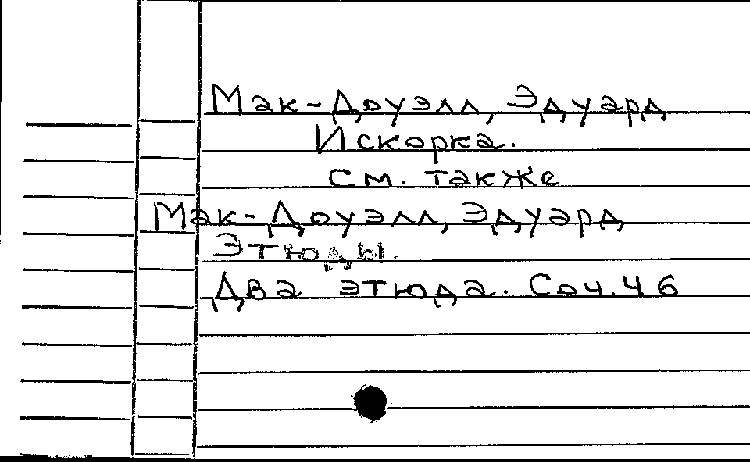 Мак-Доуэлл, Эдуард
Искорка.
См. также
Мак-Доуэлл, Эдуард
Этюды.
Два этюда. Соч. 46